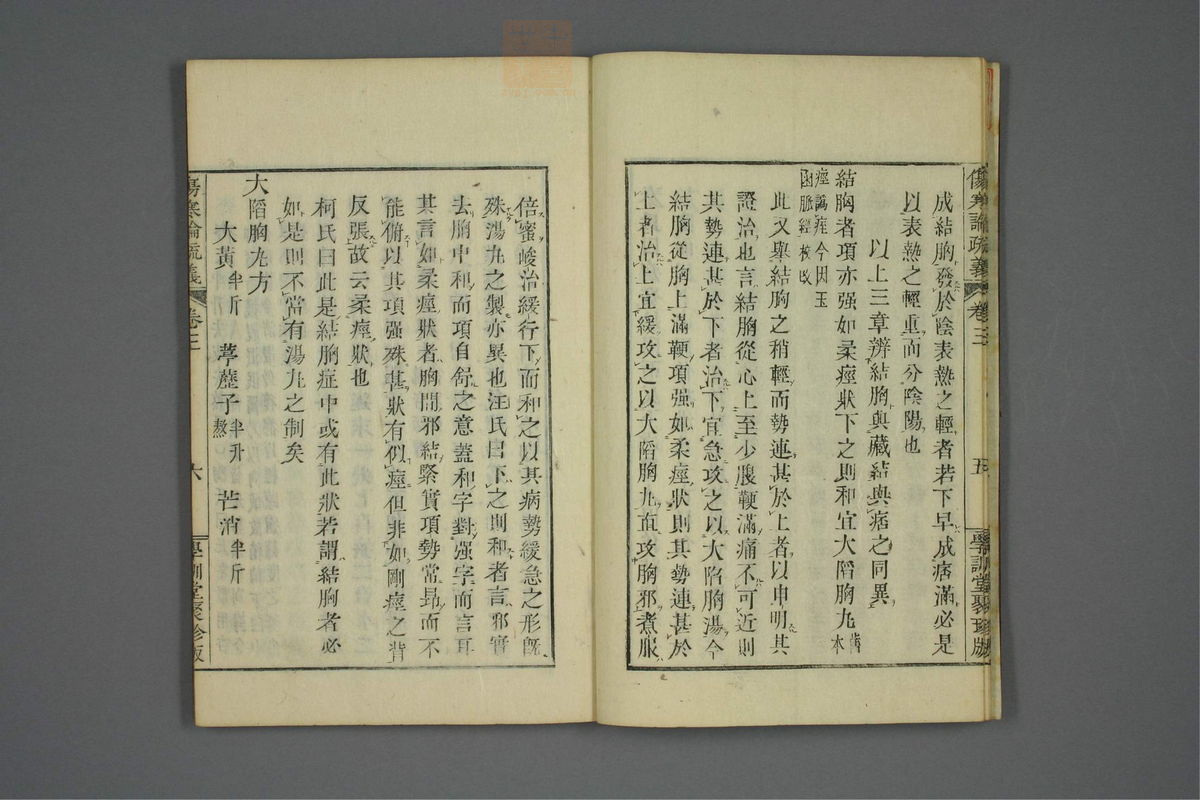 傷寒論疏義 卷三 五 學訓堂聚珍版
成結胸發於陰表熱之輕者若下早成痞滿必是
以表熱之輕重而分陰陽也
以上三章辨結胸與藏結與痞之同異
結胸者項亦强如柔痙狀下之則和宜大陷胸丸舊本
痙譌痓今因玉
函脈經校改
此又擧結胸之稍輕而勢連甚於上者以申明其
證治也言結胸從心上至少腹鞕滿痛不可近則
其勢連甚於下者治下宜急攻之以大陷胸湯今
結胸從胸上滿鞕項强如柔痙狀則其勢連甚於
上者治上宜緩攻之以大陷胸丸直攻胸邪煮服
倍蜜峻治緩行下而和之以其病勢緩急之形旣
殊湯丸之製亦異也汪氏曰下之則和者言邪實
去胸中和而項自舒之意蓋和字對强字而言耳
其言如柔痙狀者胸間邪結緊實項勢常昂而不
能俯以其項强殊甚狀有似痙但非如剛痙之背
反張故云柔痙狀也
柯氏曰此是結胸症中或有此狀若謂結胸者必
如是則不當有湯丸之制矣
大陷胸丸方
大黃半斤 葶藶子半升熬 芒消半斤
傷寒論疏義 卷三 六 學訓堂聚珍版